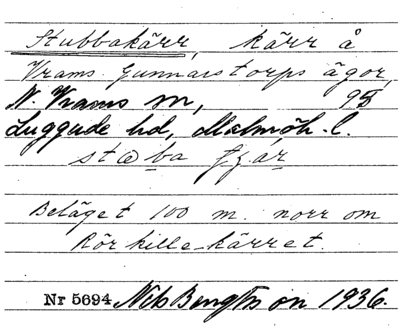 Stubbakärr, kärr å
Vrams Gunnarstorps ägor,
N. Vrams sn, 95
Luggude hd, Malmöh. l.
Beläget 100 m. norr om
Rörkille-kärret.
Nr 5694 Nils Bengtsson 1936.